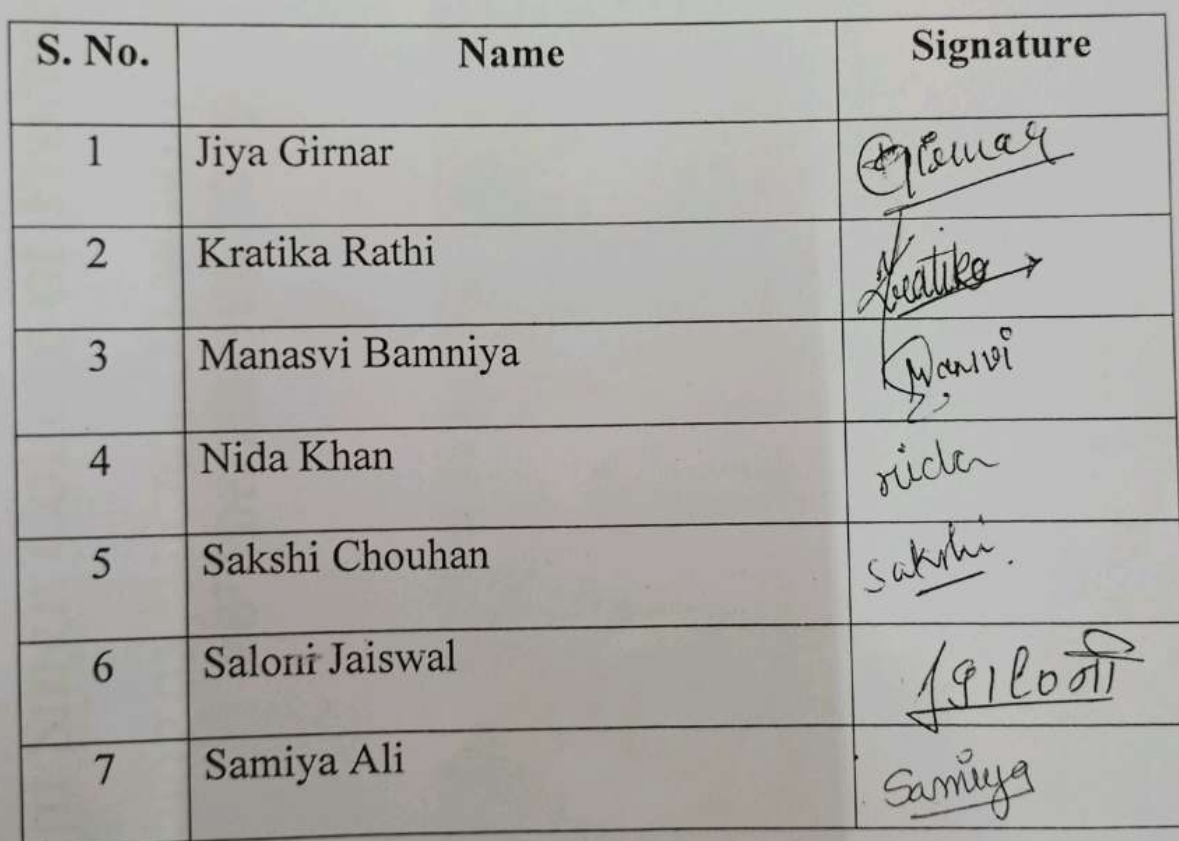 S. No. Name Signature
1 Jiya Girnar
2 Kratika Rathi Kratika
3 Manasvi Bamniya
4 Nida Khan nida
5 Sakshi Chouhan Sakshi.
6 Saloni Jaiswal
7 Samiya Ali Samiya